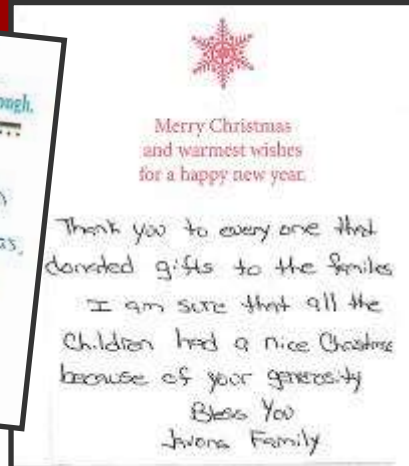 ough.
as,
Merry Christmas
and warmest wishes
for a happy new year.
Thank you to every one that
donated gifts to the familes
I am sure that all the
Children had a nice Christmas
because of your generosity
Bless You
Family